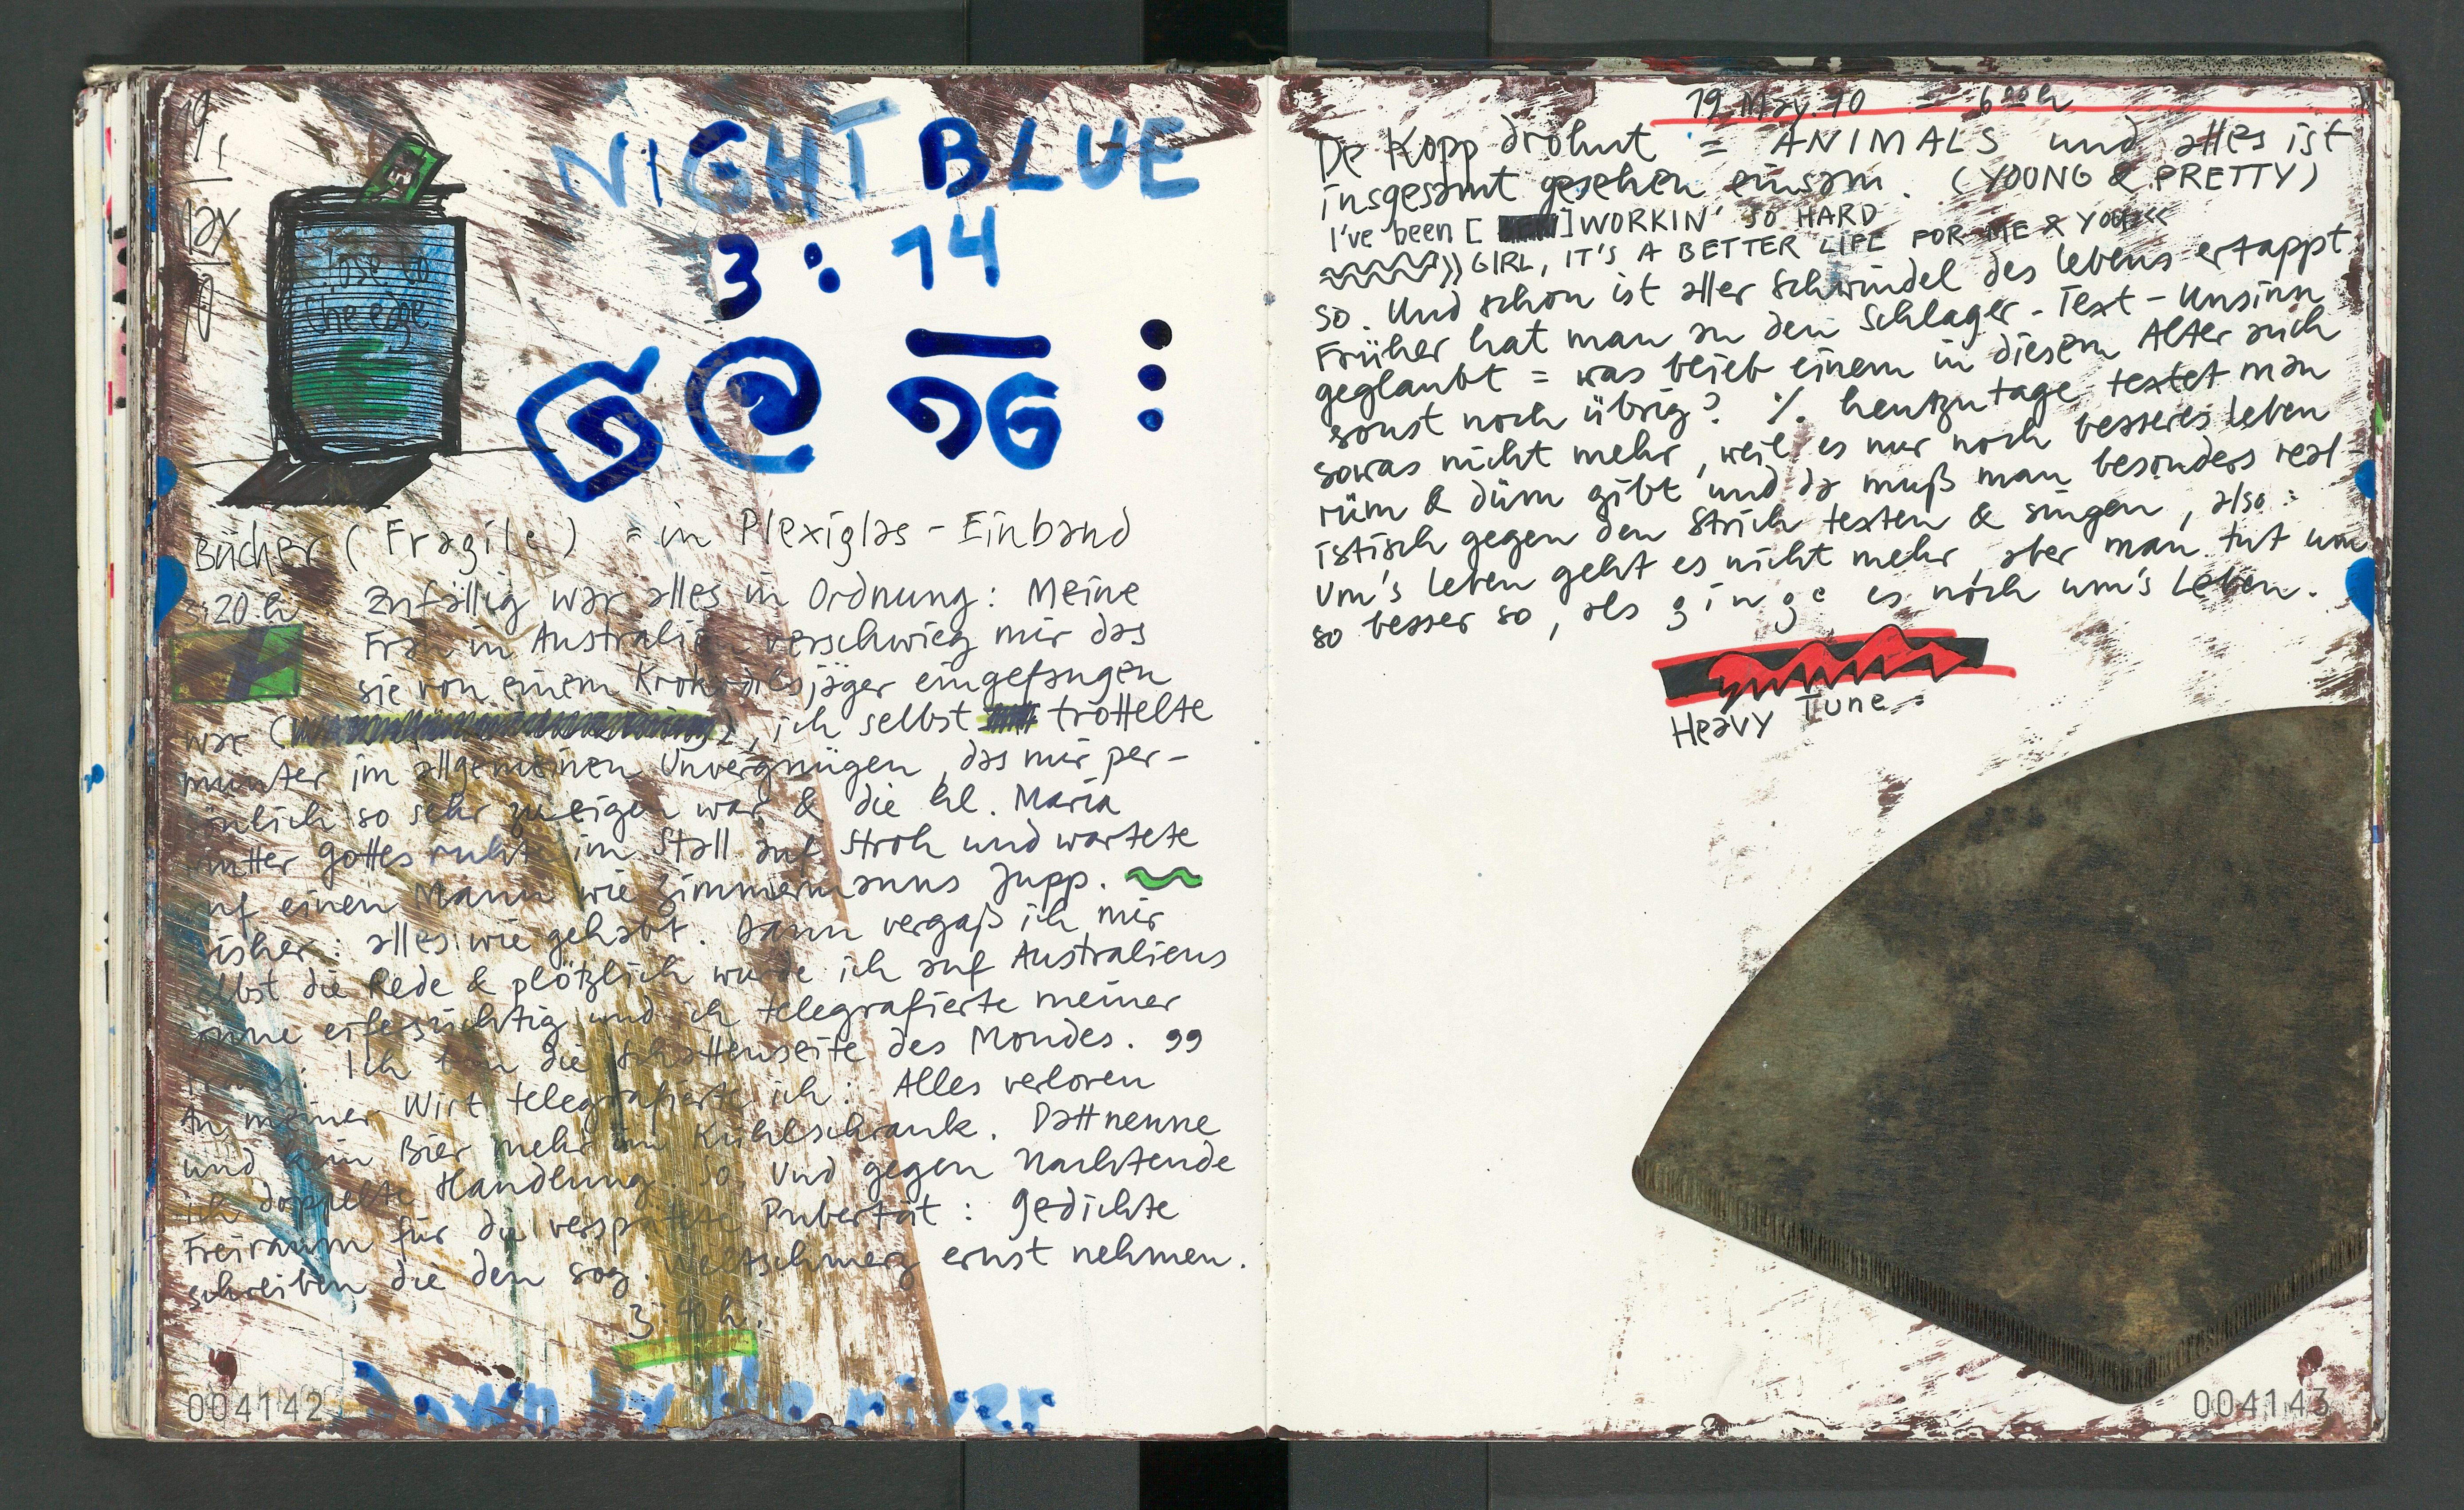 19
May
90
close to
the edge
NIGHT BLUE
3:14
Bücher (Fragile) = in Plexiglas-Einband
3:20 h Zufällig war alles in Ordnung: Meine
Frau in Australien verschwieg mir das
sie von einem Krokodilsjäger eingefangen
war ( ), ich selbst trottelte
munter im allgemeinen Unvergnügen, das mir per-
önlich so sehr zu eigen war & die hl. Maria
mutter Gottes ruhte im Stall auf Stroh und wartete
auf einen Mann wie Zimmermanns Jupp.
bisher: alles wie gehabt. Dann vergaß ich mir
selbst die Rede & plötzlich wurde ich auf Australiens
Sonne eifersüchtig und ich telegrafierte meiner
Ich bin die Schattenseite des Mondes. „
An meiner Wirt telegrafierte ich: Alles verloren
und kein Bier mehr im Kühlschrank. Datt nenne
ich doppelte Handlung. So. Und gegen Nachtende
Freiraum für die verspätete Pubertät: Gedichte
schreiben die den sog. Weltschmerz ernst nehmen.
3:40 h.
Down by the river
004142
19 May. 90 = 6 00 h
De Kopp dröhnt = ANIMALS und alles ist
insgesamt gesehen einsam. (YOUNG & PRETTY)
I've been [ ] WORKIN' SO HARD
» GIRL, IT'S A BETTER LIFE FOR ME & YOU «
So. Und schon ist aller Schwindel des Lebens ertappt
Früher hat man an den Schlager-Text-Unsinn
geglaubt = was blieb einem in diesem Alter auch
sonst noch übrig? %. heutzutage textet man
sowas nicht mehr, weil es nur noch besseres Leben
rüm & düm gibt und da muß man besonders real-
istisch gegen den Strich texten & singen, also:
Um's Leben geht es nicht mehr, aber man tut um
so besser so, als ginge es noch um's Leben.
Heavy Tune:
004143